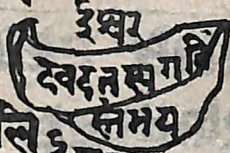 ईश्वर
देवदत्तस्य गति
समय
लि